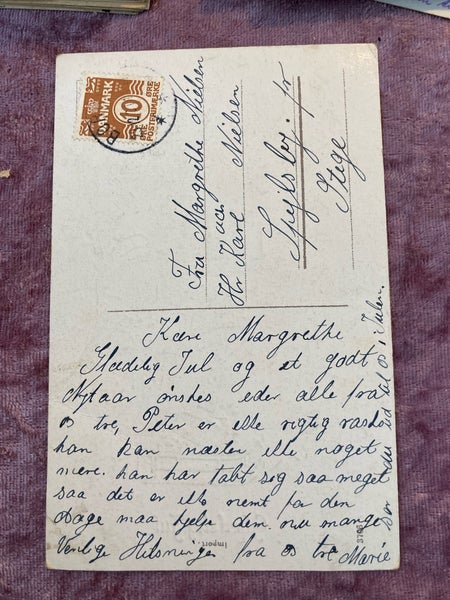 DANMARK
10
ØRE
POSTFRIMÆRKE
Fru Margrethe Nielsen
og
Hr Karl Nielsen
Spejlsby. pr
Stege
Kære Margrethe
Glædelig Jul og et godt
Nytaar ønskes eder alle fra
os tre, Peter er elle rigtig rask
han kan næsten elle noget
mere. han har tabt sig saa meget
saa det er elle nemt for den
Dage maa hjelpe dem. mange
Venlige Hilsninger fra os tre Marie
ud til os i Julen.
Import.